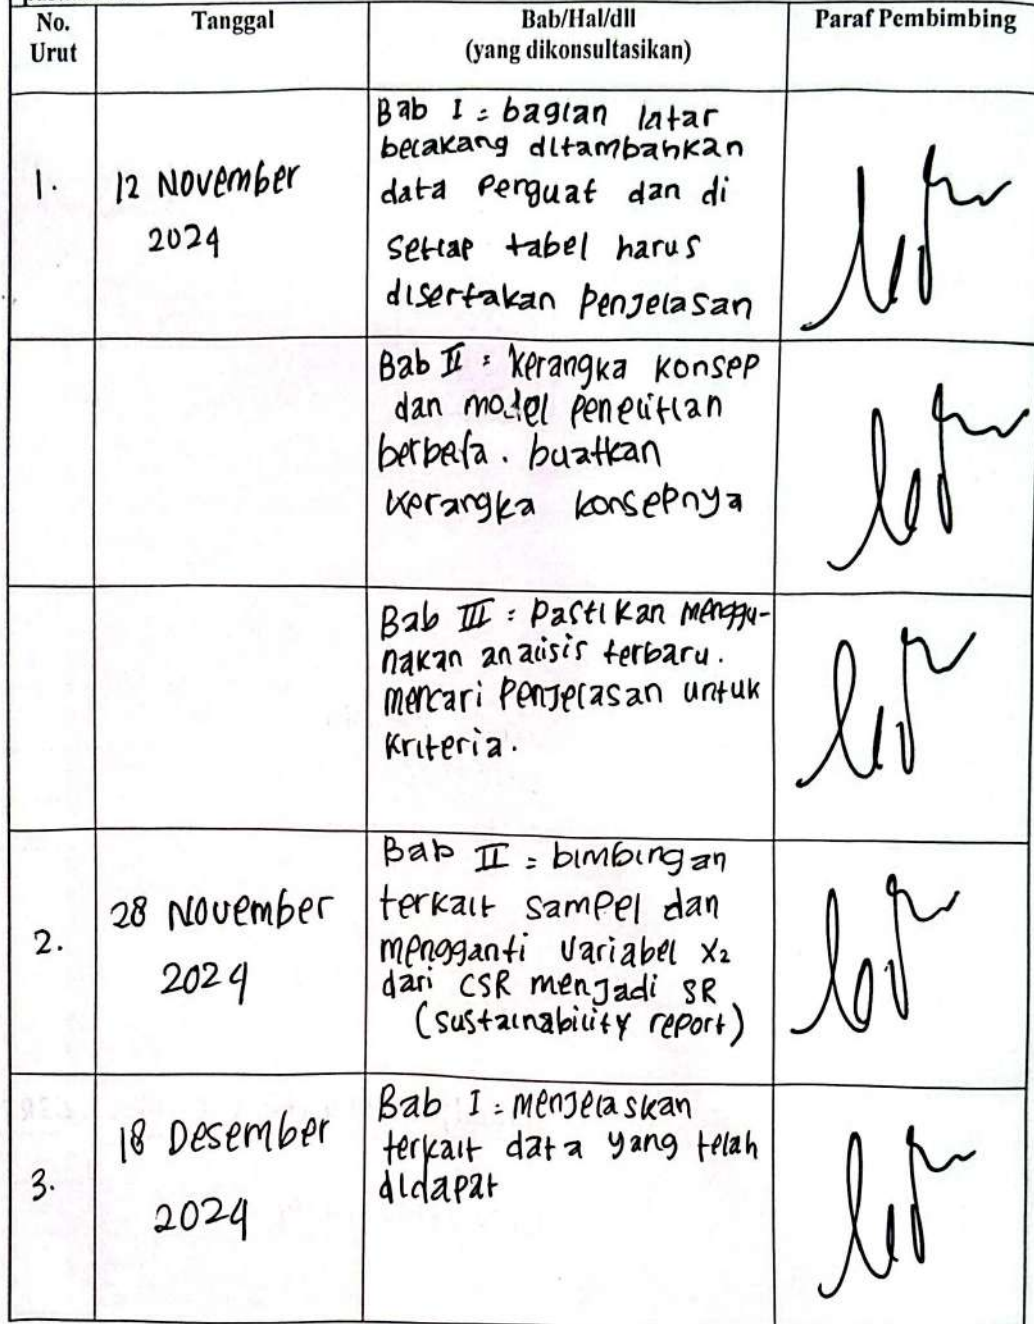 No. Urut
Tanggal
Bab/Hal/dll
(yang dikonsultasikan)
Paraf Pembimbing
1.
12 November
2024
Bab I : bagian latar
belakang ditambahkan
data Penguat dan di
Setiap tabel harus
disertakan Penjelasan
Bab II : Kerangka Konsep
dan model Penelitian
berbeda. buatkan
Kerangka konsepnya
Bab III : Pastikan menggu-
nakan analisis terbaru.
mencari Penjelasan untuk
Kriteria.
2.
28 November
2024
Bab II : bimbingan
terkait sampel dan
mengganti Variabel X2
dari CSR menjadi SR
(sustainability report)
3.
18 Desember
2024
Bab I : menjelaskan
terkait data yang telah
didapat